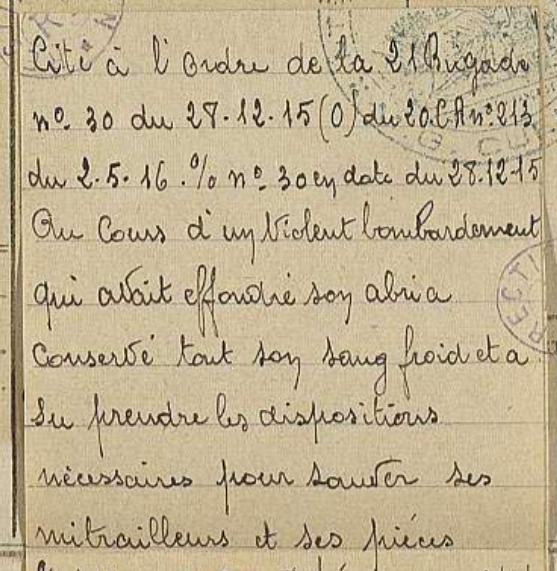 Cité à l'ordre de la 21 Brigade
nº 30 du 28.12.15 (O) du 20.C.A nº 213
du 2.5.16. % nº 30 en date du 28.12.15
Au cours d'un violent bombardement
qui avait effondré son abri a
conservé tout son sang froid et a
su prendre les dispositions
nécessaires pour sauver ses
mitrailleurs et ses pièces